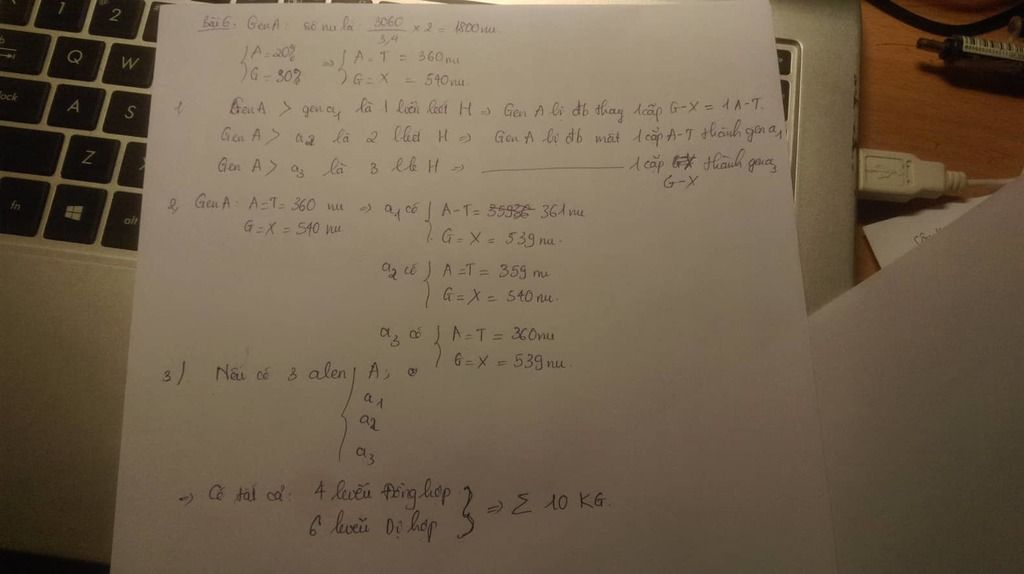 Bài 6. Gen A: số nu là: 3060/3,4 × 2 = 1800 nu.
{ A = 20% G = 30% => { A = T = 360 nu G = X = 540 nu.
1 Gen A > gen a1 là 1 liên kết H => Gen A bị đb thay 1 cặp G-X = 1 A-T.
Gen A > a2 là 2 lket H => Gen A bị đb mất 1 cặp A-T thành gen a1
Gen A > a3 là 3 lk H => ———— 1 cặp G-X thành gen a3
2, Gen A: A=T= 360 nu => a1 có { A-T = 361 nu
G=X = 540 nu G = X = 539 nu.
a2 có { A =T = 359 nu
G = X = 540 nu.
a3 có { A = T = 360 nu
G = X = 539 nu.
3). Nếu có 3 alen { A;
a1
a2
a3
=> Có tất cả: 4 kiểu Đồng hợp
6 kiểu Dị hợp } => Σ 10 KG.
Q
W
A
S
Z
fn
alt
1
2